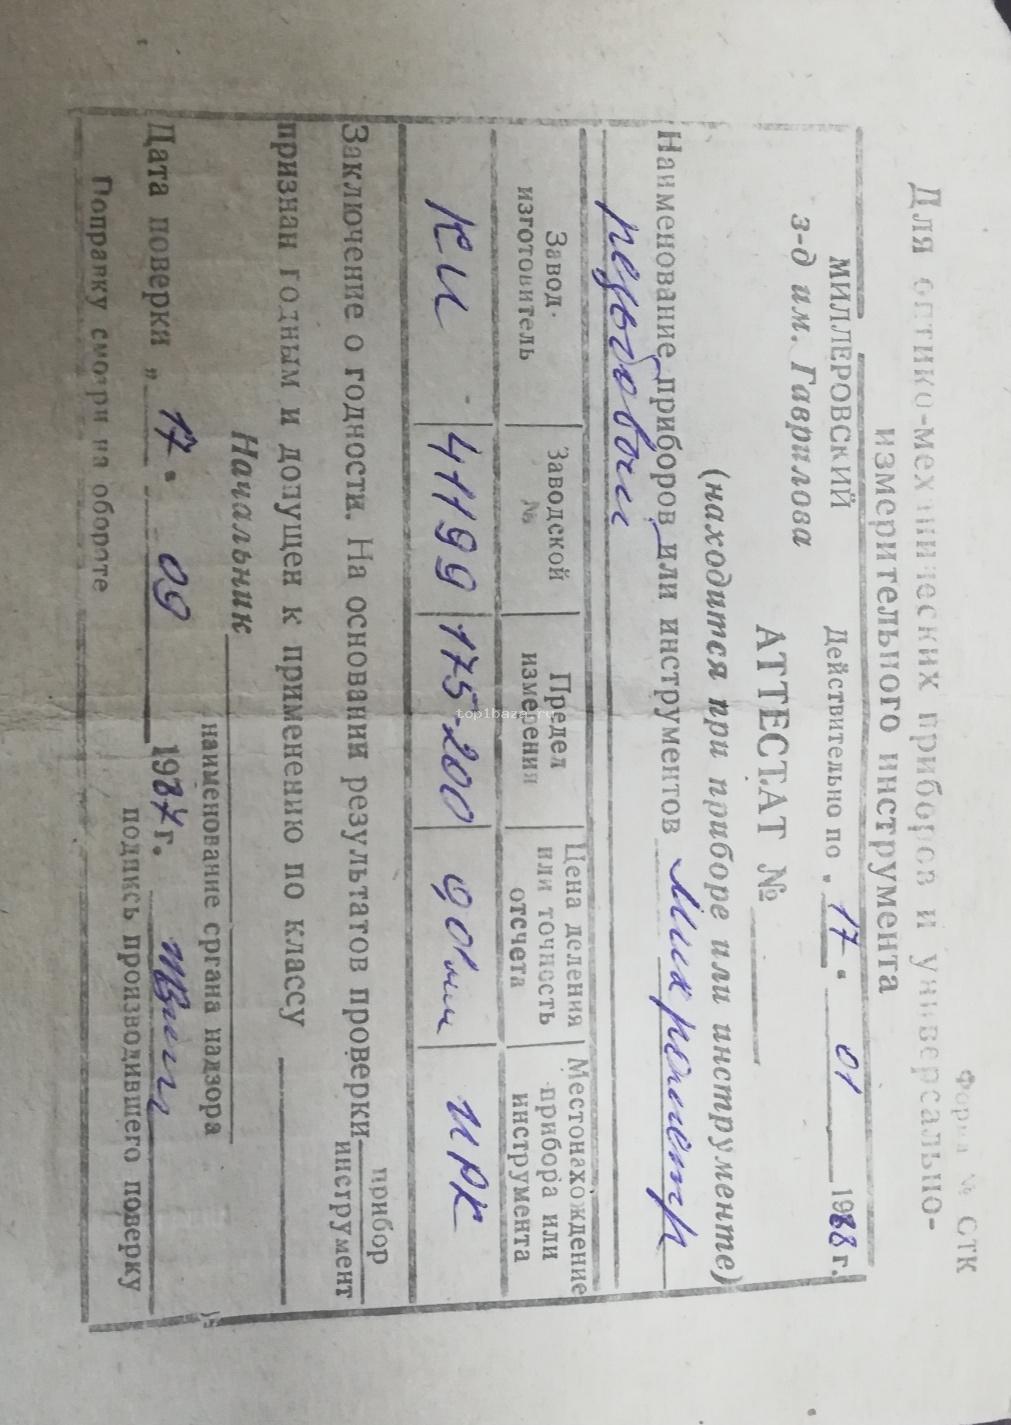 Форма № СТК
Для оптико-механических приборов и универсально-
измерительного инструмента
МИЛЛЕРОВСКИЙ
з-д им. Гаврилова
Действительно по „17“ 01 1988 г.
АТТЕСТАТ №
(находится при приборе или инструменте)
Наименование приборов или инструментов микрометр
резьбовой
Завод-изготовитель | Заводской № | Предел измерения | Цена деления или точность отсчета | Местонахождение прибора или инструмента
КИ | 41199 | 175-200 | | ИРК
Заключение о годности. На основании результатов проверки прибор
инструмент
признан годным и допущен к применению по классу
Начальник
наименование органа надзора
Дата поверки „17“ 09 1987 г.
подпись производившего поверку
Поправку смотри на обороте
top1baza.ru